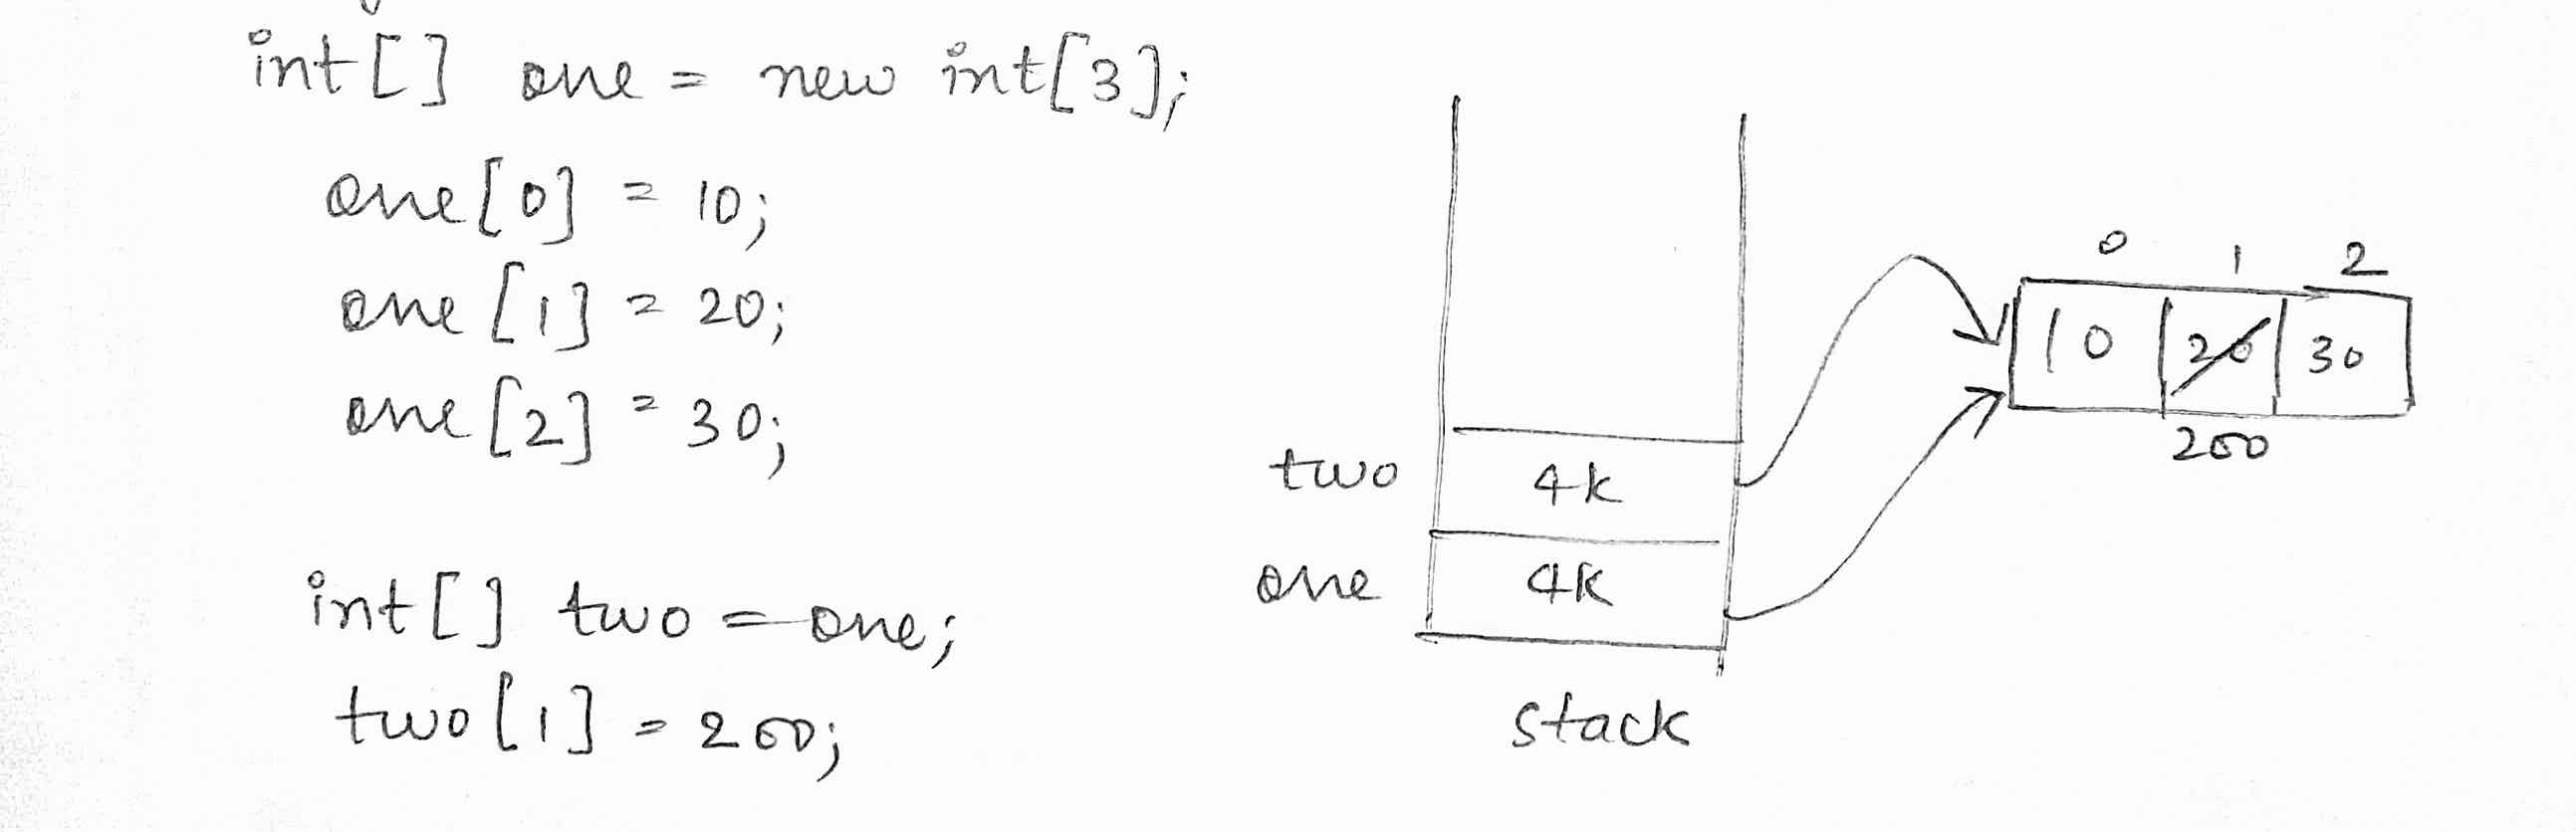 int[] one = new int[3];
one[0] = 10;
one[1] = 20;
one[2] = 30;
int[] two = one;
two[1] = 200;
two 4k
one 4k
stack
0 1 2
10 20 30
200